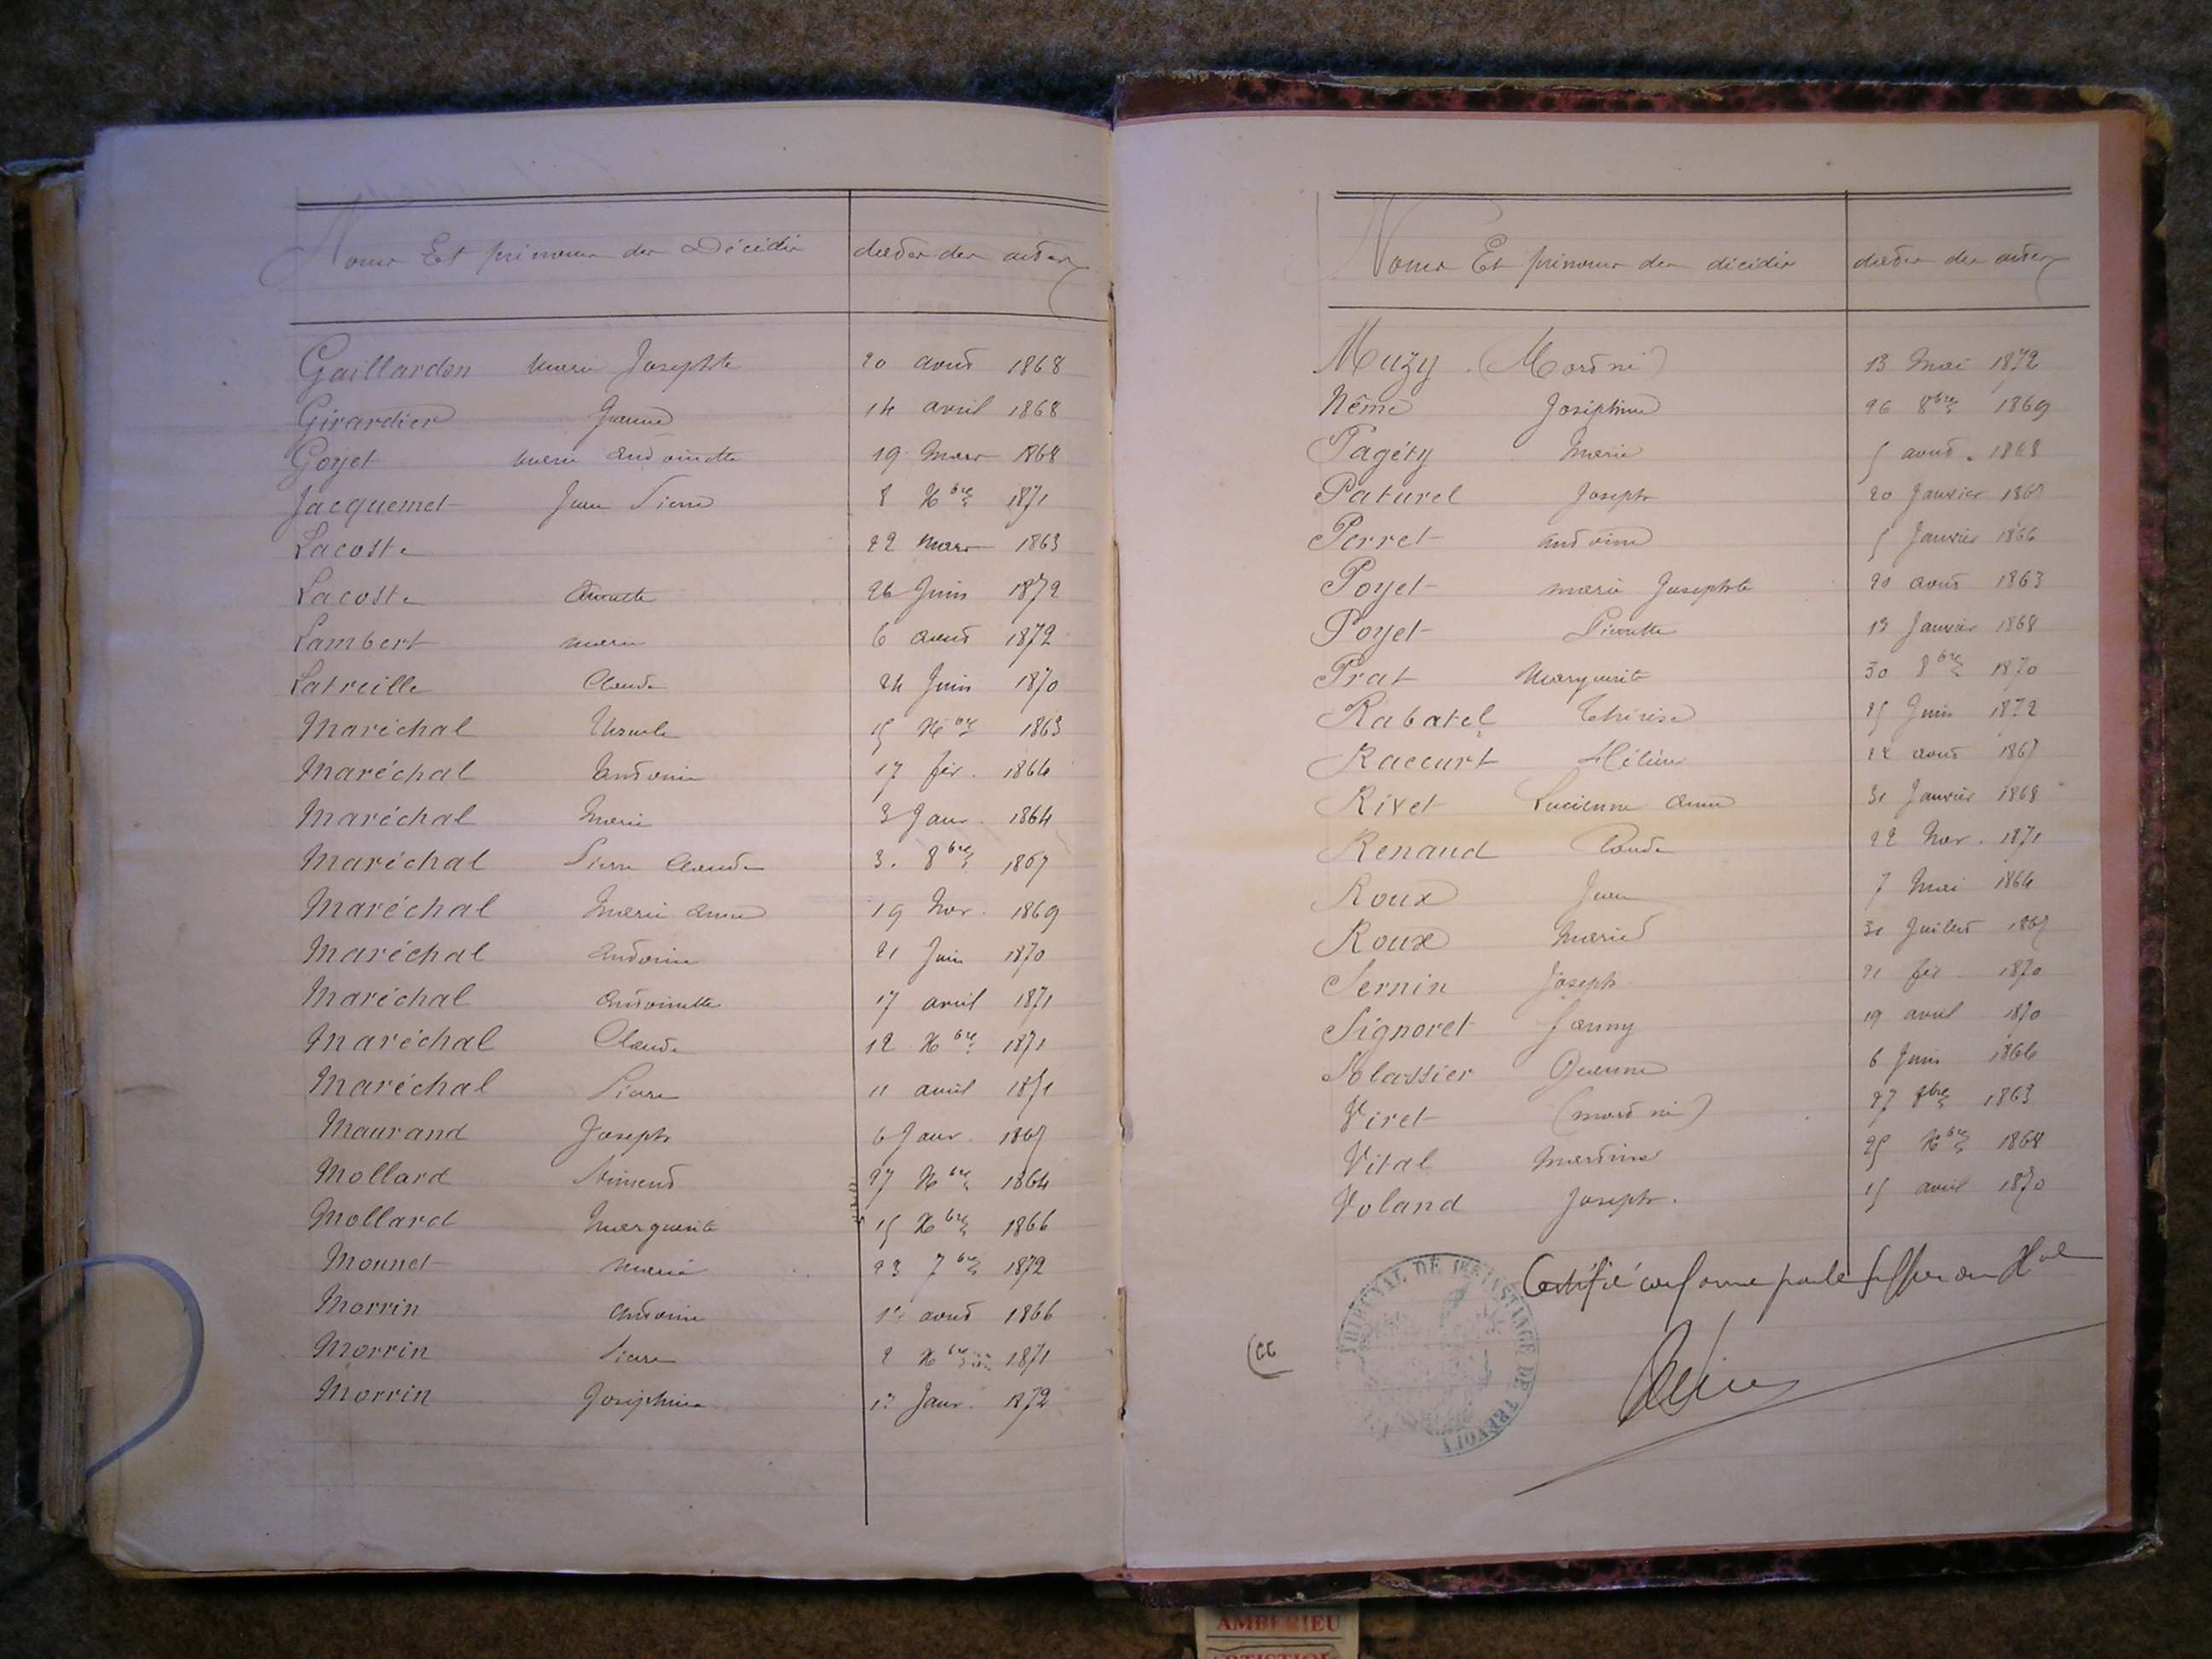 Noms Et prénoms des Décédés dates des actes
Gaillardon Marie Josephte 20 aout 1868
Girardier Jeanne 14 avril 1868
Goyet Marie Antoinette 19 Mars 1868
Jacquemet Jean Pierre 8 Xbre 1871
Lacoste 22 Mars 1863
Lacoste 26 Juin 1872
Lambert Marie 6 aout 1872
Latreille Claude 24 Juin 1870
Maréchal Ursule 15 Xbre 1863
Maréchal Antoine 17 fév. 1864
Maréchal Marie 3 Janv. 1864
Maréchal Pierre Claude 3. 8bre 1867
Maréchal Marie Anne 19 Nov. 1869
Maréchal Antoine 21 Juin 1870
Maréchal Antoinette 17 avril 1871
Maréchal Claude 12 Xbre 1871
Maréchal Pierre 11 avril 1871
Maurand Joseph 6 Janv. 1867
Mollard 27 Xbre 1864
Mollard Marguerite 15 Xbre 1866
Monnet Marie 23 7bre 1872
Morrin Antoine aout 1866
Morrin Pierre 2 Xbre 1871
Morrin Joséphine Janv. 1872
Noms Et prénoms des décédés dates des actes
Muzy (Mort né) 13 Mai 1872
Mémé Joséphine 26 8bre 1869
Pagéty Marie 5 aout. 1868
Paturel Joseph 20 Janvier 1867
Perret Antoine 5 Janvier 1866
Poyet Marie Josephte 20 aout 1863
Poyet Pierrette 13 Janvier 1868
Prat Marguerite 30 8bre 1870
Rabatel Thérèse 25 Juin 1872
Raccurt Hélène aout 1867
Rivet Lucienne Anne 31 Janvier 1868
Renaud Claude 22 Nov. 1871
Roux Jean 7 Mai 1864
Roux Marie 31 Juillet 1867
Sernin Joseph 21 fév 1870
Signoret Fanny 19 avril 1870
Solassier 6 Juin 1866
Viret (mort né) 27 1863
Vital Martine 25 Xbre 1868
Voland Joseph. 15 avril 1870
Certifié conforme par le Greffier du
TRIBUNAL DE 1ERE INSTANCE DE TREVOUX
AMBERIEU